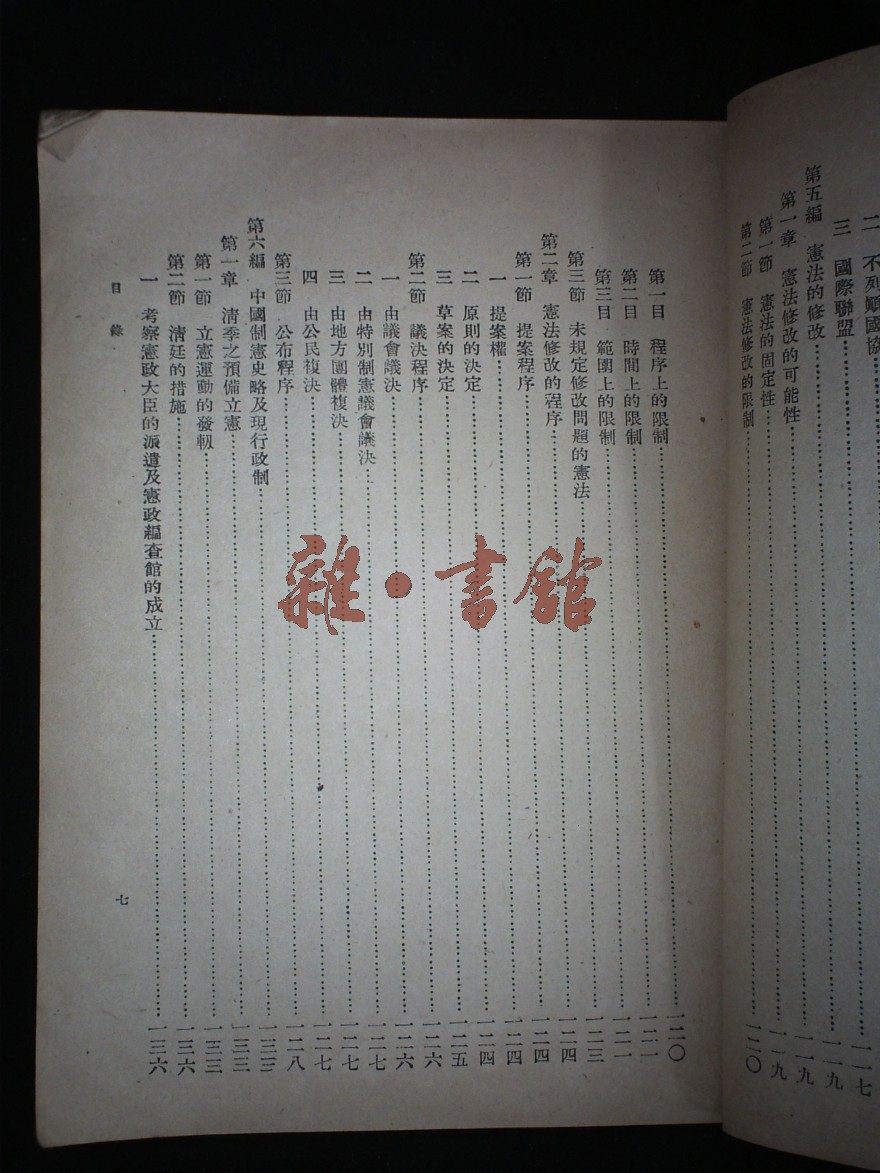 二 不列顛國協……一一七
三 國際聯盟……一一九
第五編 憲法的修改……一一九
第一章 憲法修改的可能性……一一九
第一節 憲法的固定性……一一九
第二節 憲法修改的限制……一二〇
第一目 程序上的限制……一二〇
第二目 時間上的限制……一二一
第三目 範圍上的限制……一二三
第三節 未規定修改問題的憲法……一二四
第二章 憲法修改的程序……一二四
第一節 提案程序……一二四
一 提案權……一二四
二 原則的決定……一二五
三 草案的決定……一二六
第二節 議決程序……一二六
一 由議會議決……一二七
二 由特別制憲議會議決……一二七
三 由地方團體複決……一二七
四 由公民複決……一二八
第三節 公布程序
第六編 中國制憲史略及現行政制……一三三
第一章 清季之預備立憲……一三三
第一節 立憲運動的發軔……一三三
第二節 清廷的措施……一三六
一 考察憲政大臣的派遣及憲政編查館的成立……一三六
目錄
七
雜·書館